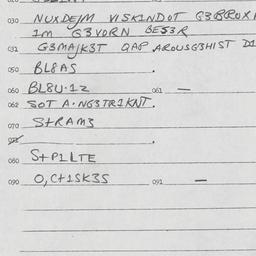 030 NUXDEJM VISKINDOT G3BROX
1M G3VORN BES3R
031 G3MAJK3T QAP AROUSG3HIST D1
050 BL8AS .
060 BL8U.12 061 —
062 SOT A.NG3TR1KNT.
070 StRAM3
080 StP1LTE
090 O,Ct1SK3S 091 —